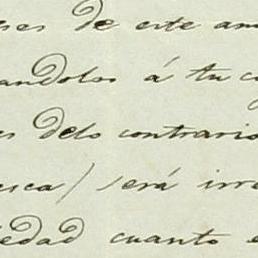 ses de este am
andolos á tu co
es delo contrario
esca/ será irre
iedad cuanto e